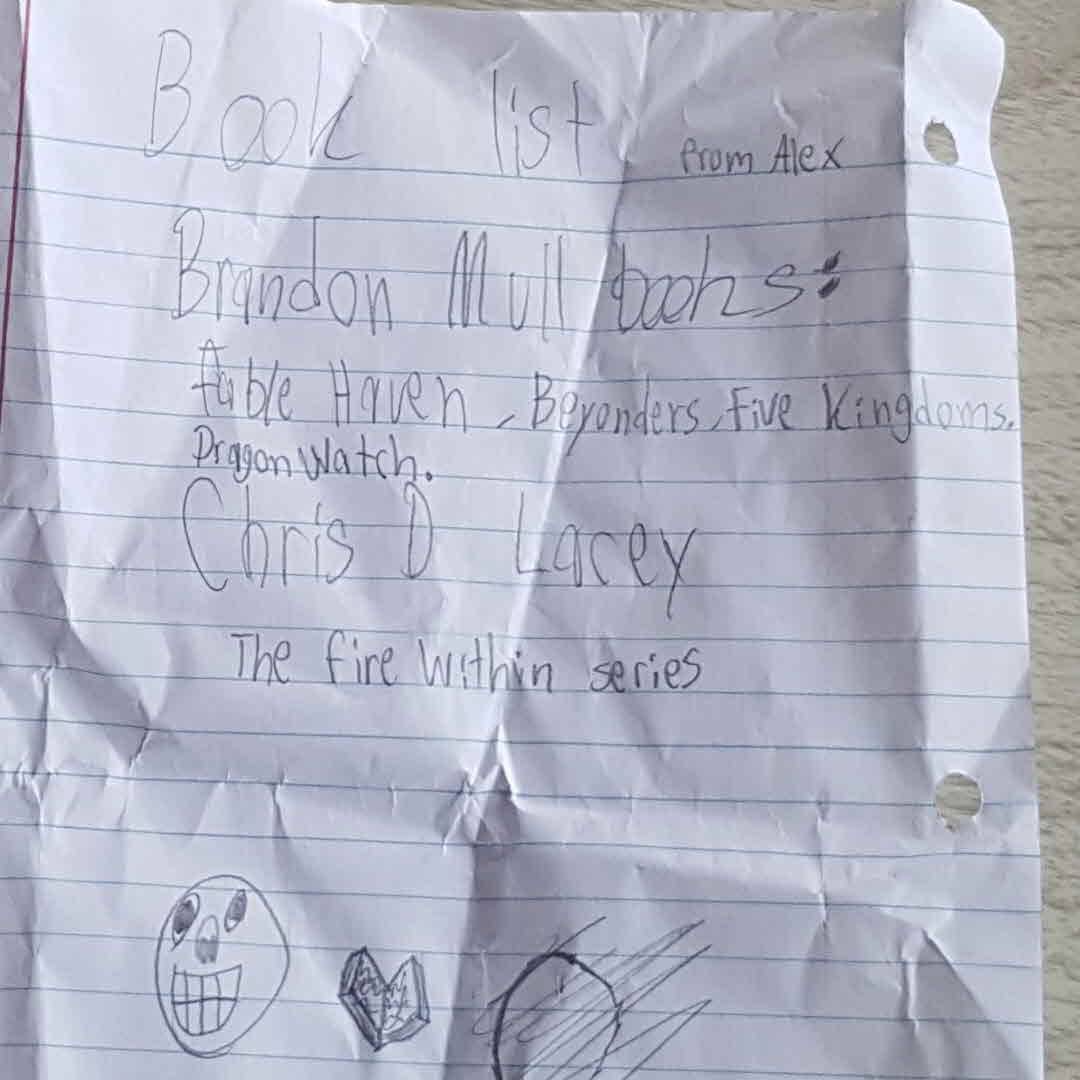 Book list from Alex
Brandon Mull books:
fable Haven, Beyonders, Five Kingdoms.
Dragon Watch.
Chris D Lacey
The fire within series